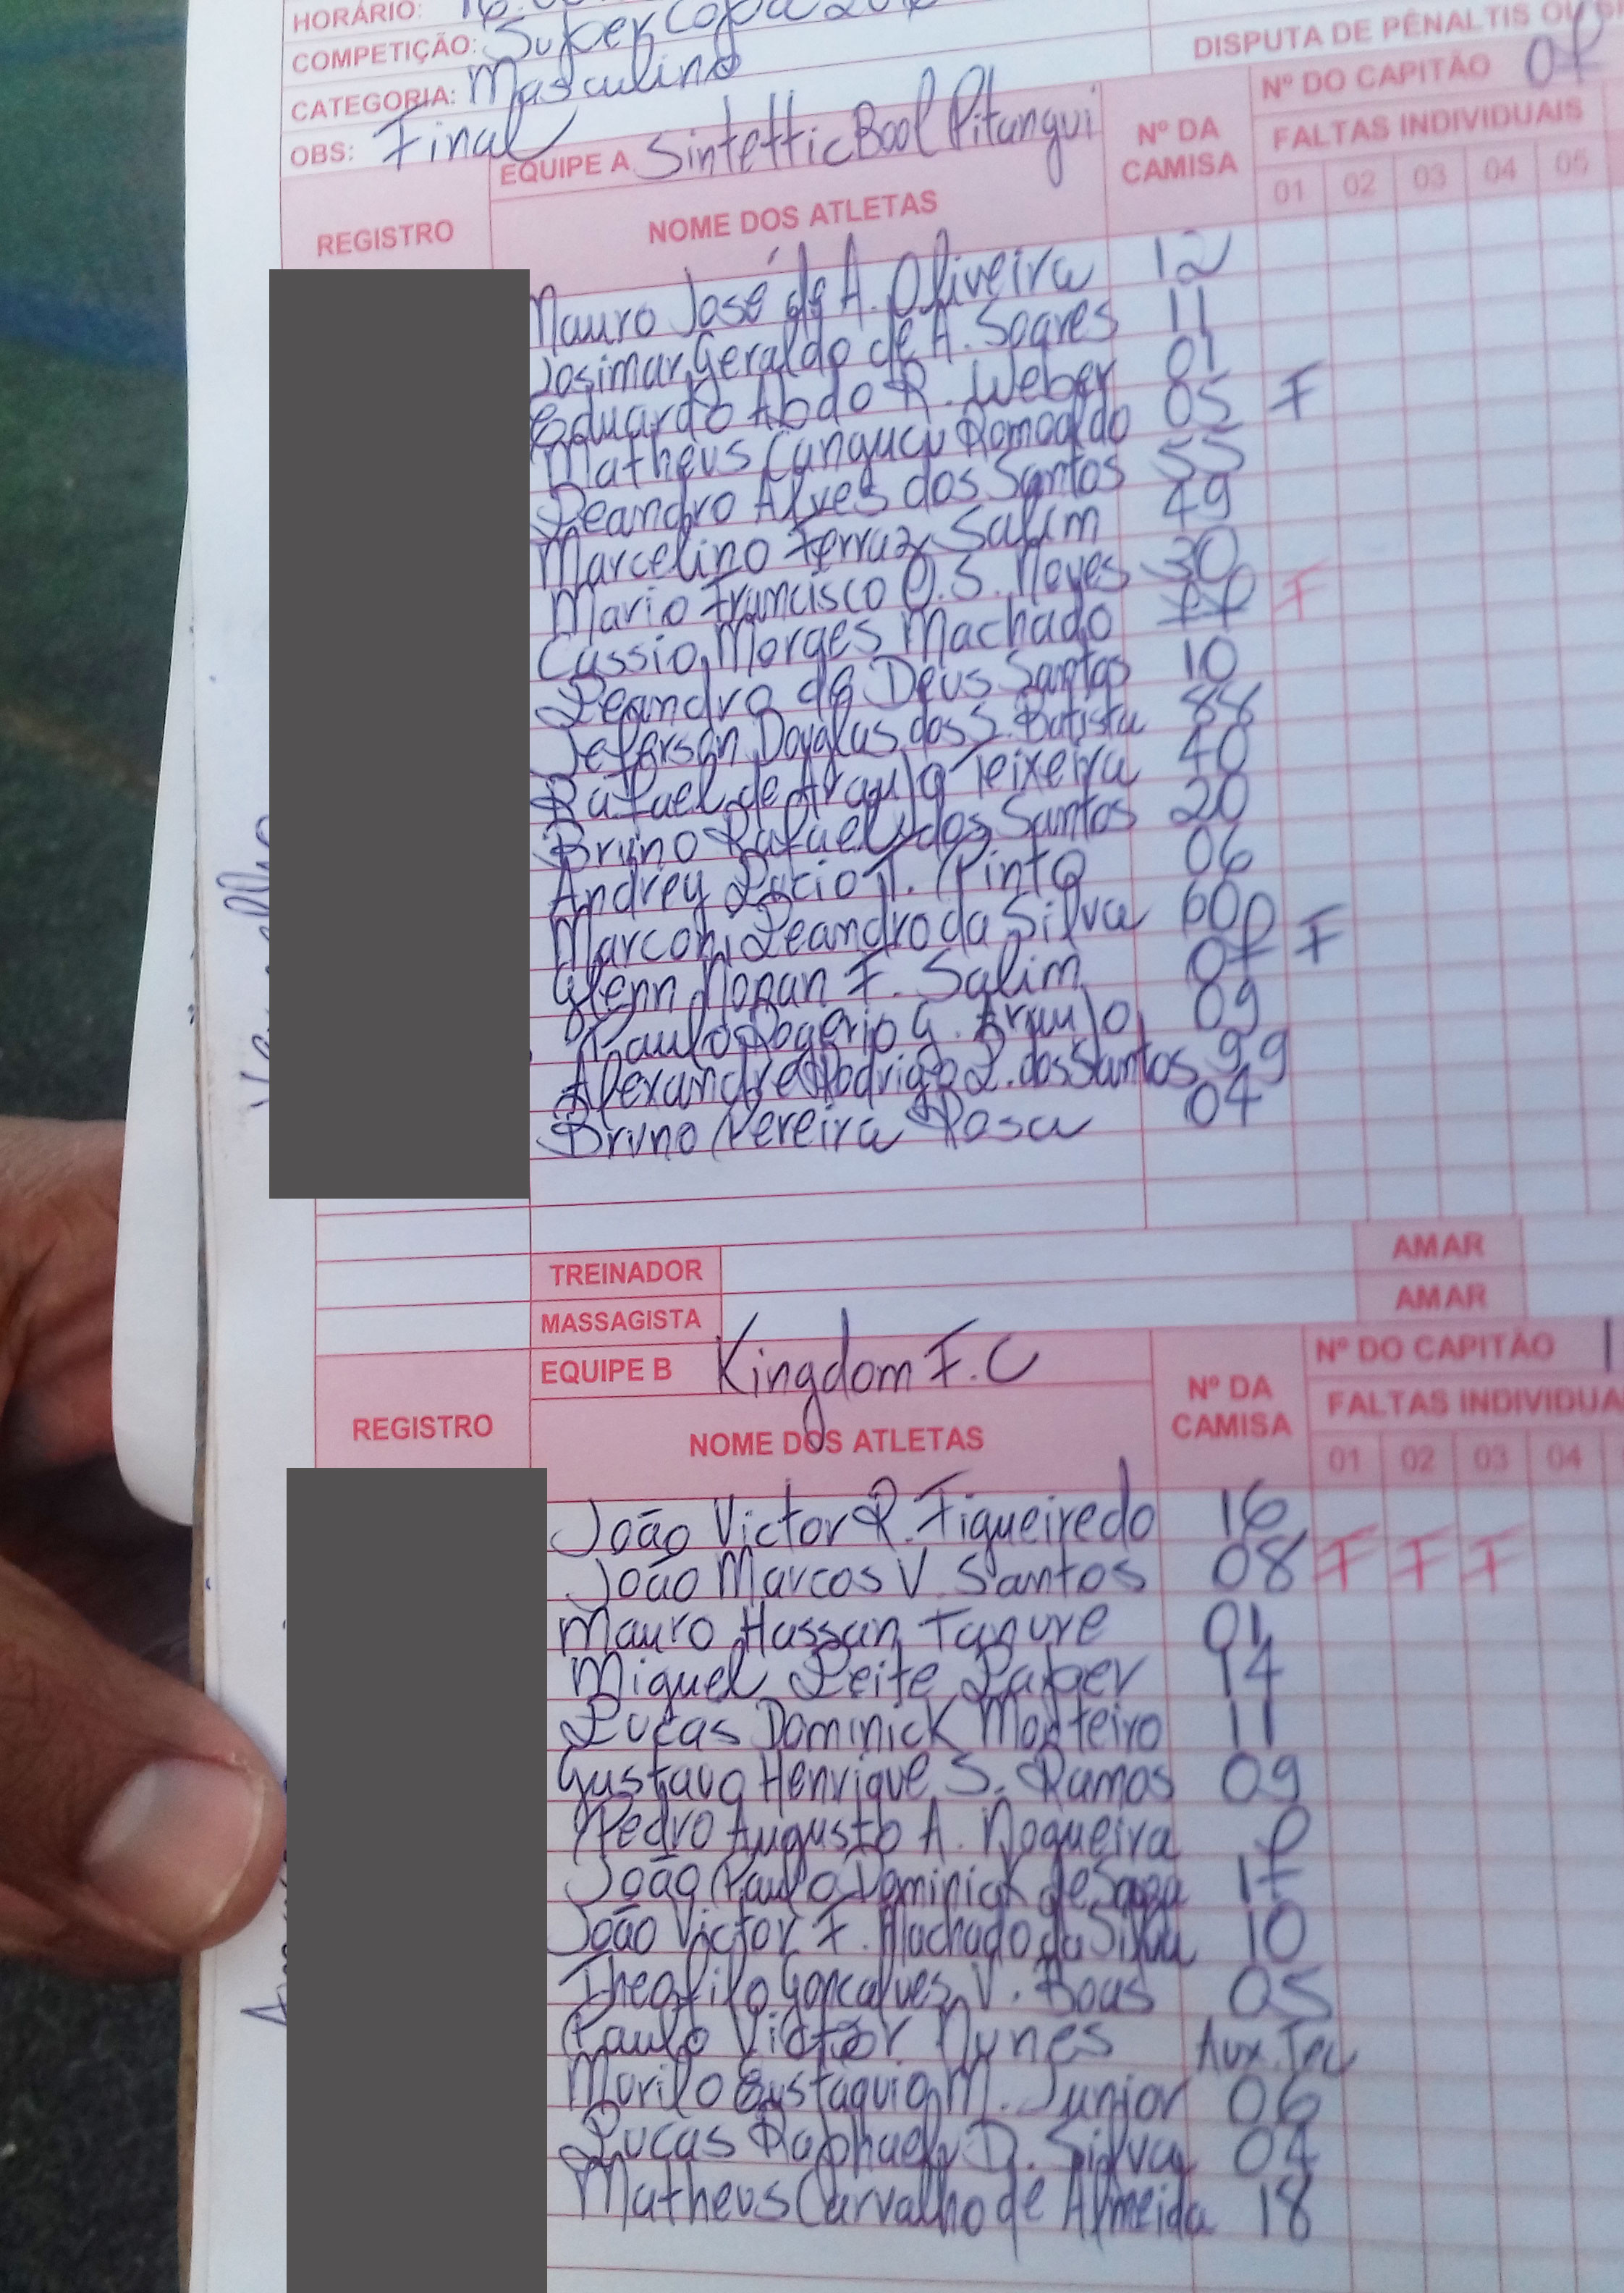 HORÁRIO:
COMPETIÇÃO: Super Copa
CATEGORIA: Masculino
DISPUTA DE PÊNALTIS OU
OBS: Final
EQUIPE A SintetticBool Pitangui
Nº DA CAMISA
Nº DO CAPITÃO 07
FALTAS INDIVIDUAIS
REGISTRO
NOME DOS ATLETAS
01 02 03 04 05
Mauro José de A. Oliveira 12
Josimar Geraldo de A. Soares 11
Eduardo Abdo R. Weber 01
Matheus Canguçu Romoaldo 05 F
Leandro Alves dos Santos 55
Marcelino Ferraz Salim 49
Mario Francisco O. S. Neves 30
Cassio Morges Machado 77 F
Leandro de Deus Santos 10
Jeferson Douglas dos S. Batista 88
Rafael de Araujo Teixeira 40
Bruno Rafael dos Santos 20
Andrey Lucio T. Pinto 06
Marconi Leandro da Silva 60
Glenn Noran F. Salim 07 F
Paulo Rogerio G. Araujo 09
Alexandre Rodrigo L. dos Santos 99
Bruno Pereira Rosa 04
TREINADOR
AMAR
MASSAGISTA
AMAR
EQUIPE B Kingdom F.C
Nº DA CAMISA
Nº DO CAPITÃO 1
FALTAS INDIVIDUA
REGISTRO
NOME DOS ATLETAS
01 02 03 04
João Victor R. Figueiredo 16
João Marcos V. Santos 08 F F F
Mauro Hassan Tanure 01
Miguel Leite 14
Lucas Dominick Monteiro 11
Gustavo Henrique S. Ramos 09
Pedro Augusto A. Nogueira 7
João Paulo Dominick de Souza 17
João Victor F. Machado da Silva 10
Theofilo Goncalves V. Boas 05
Paulo Victor Nunes Aux. Tec
Murilo Eustaquio M. Junior 06
Lucas Raphael D. Silva 04
Matheus Carvalho de Almeida 18